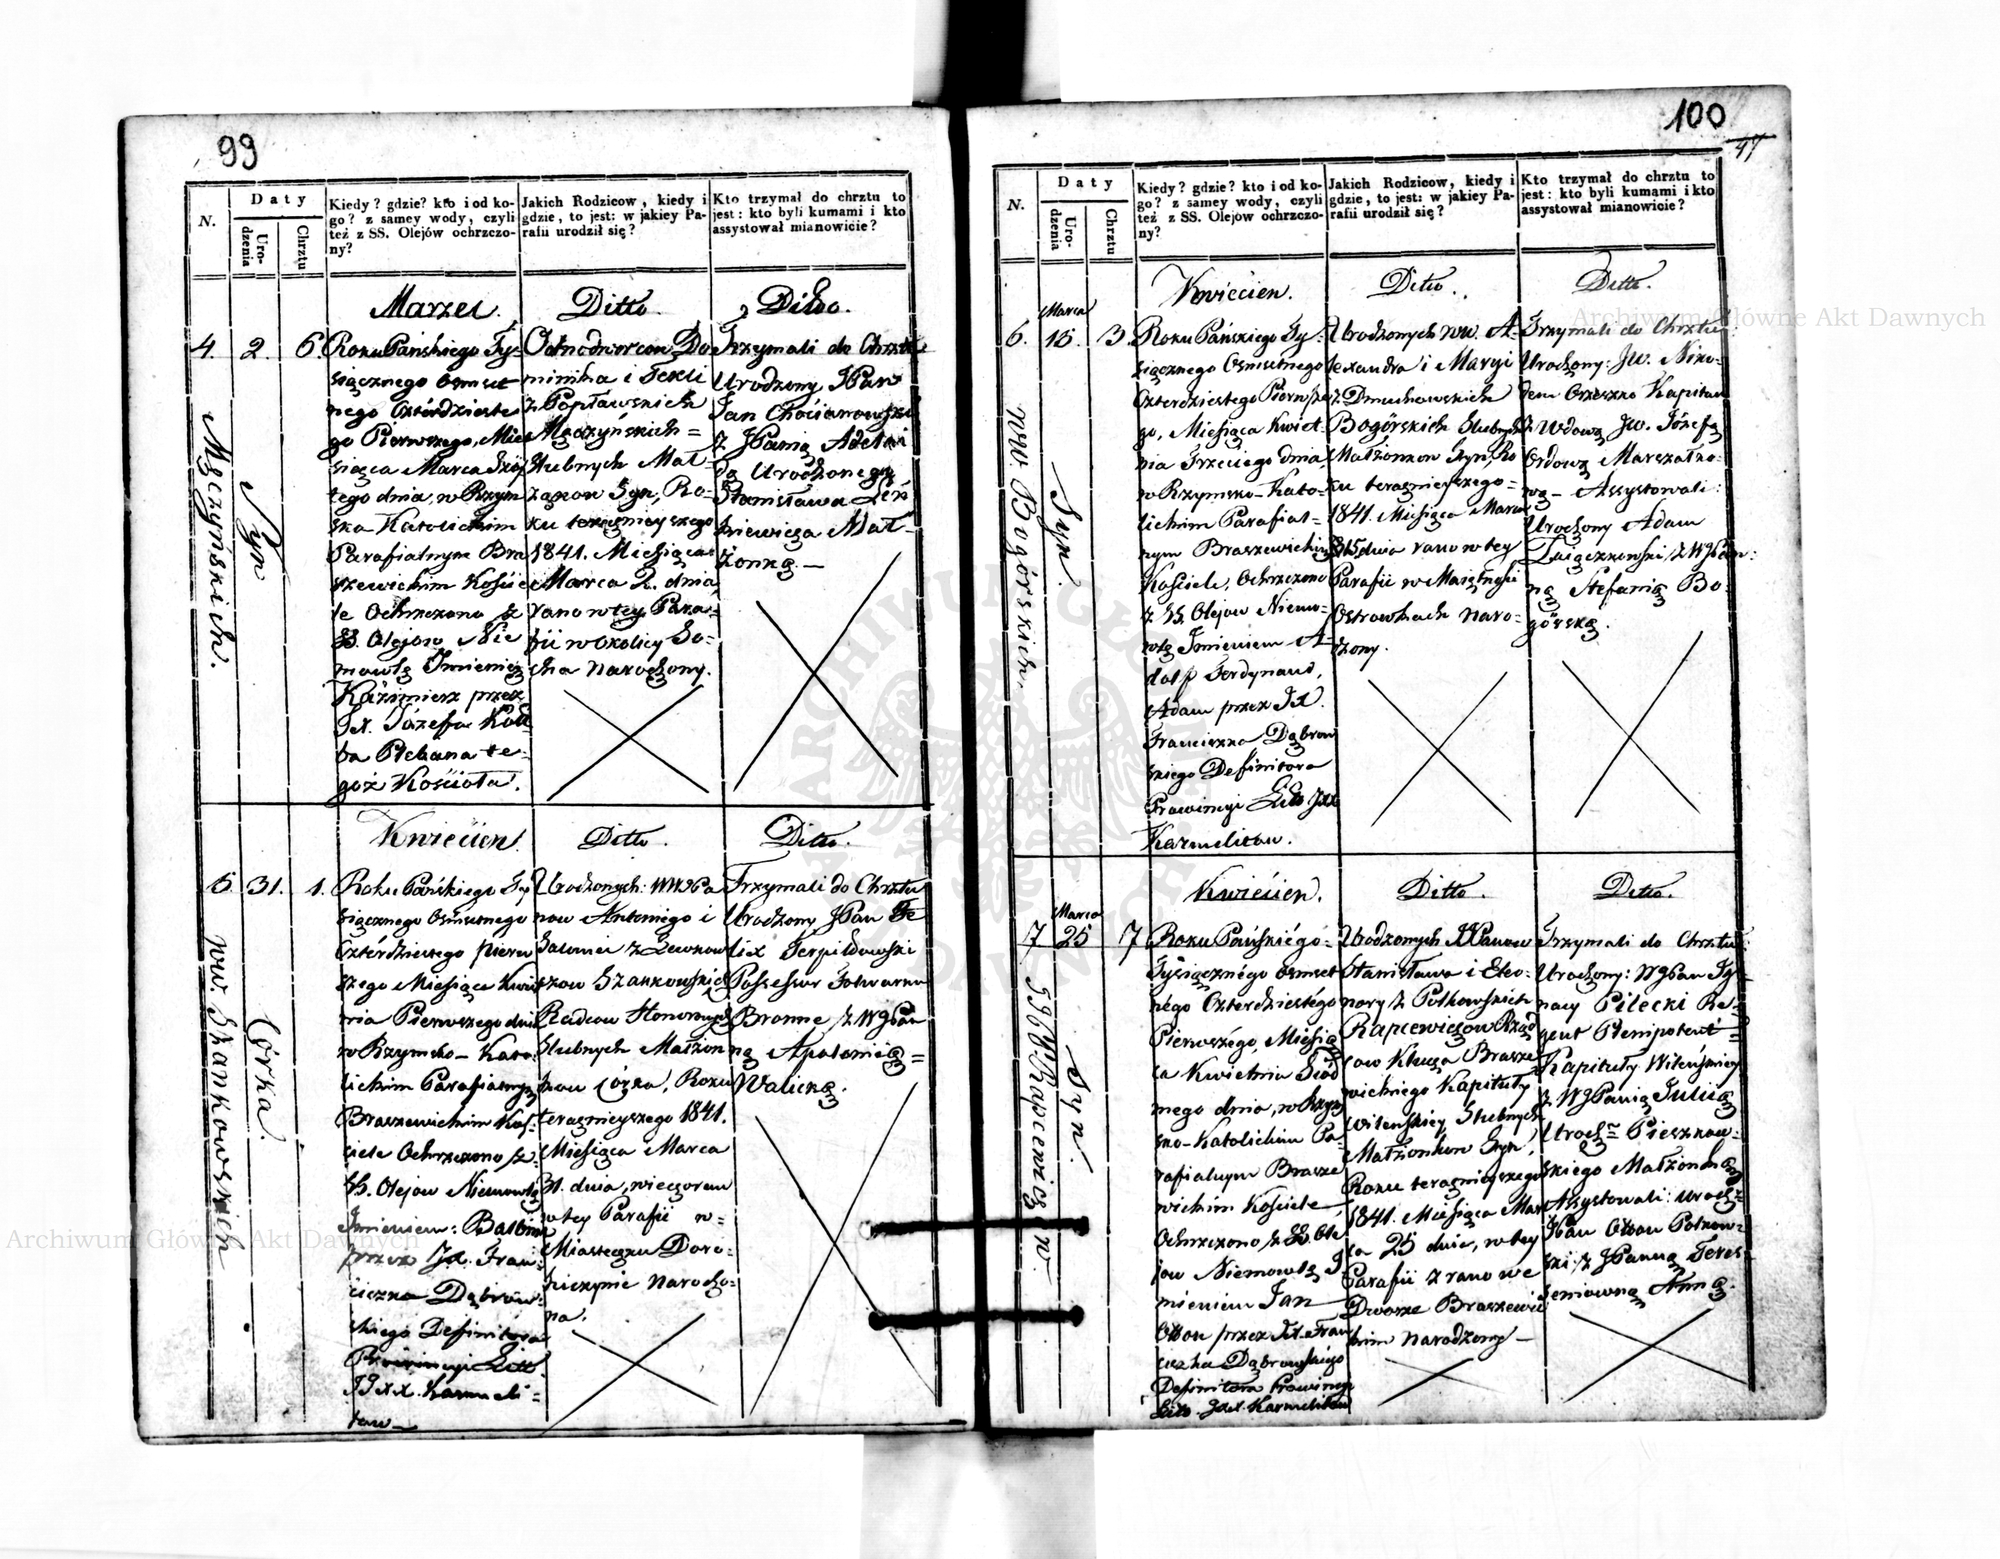 99
N.
Daty
Uro-
dzenia
Chrztu
Kiedy? gdzie? kto i od ko-
go? z samey wody, czyli
też z SS. Olejów ochrzczo-
ny?
Jakich Rodzicow, kiedy i
gdzie, to jest: w jakiey Pa-
rafii urodził się?
Kto trzymał do chrztu to
jest: kto byli kumami i kto
assystował mianowicie?
4.
2.
6.
Mączyńskich.
Syn
Marzec.
Roku Pańskiego Ty-
siącznego Osmset
nego Czterdzieste
go Pierwszego, Mie
siąca Marca Szós
tego dnia, w Rzym
sko Katolickim
Parafialnym Bra
szewickim Koście
le Ochrzczono z
SS. Olejow Nie
mowlę Imieniem
Kazimierz przez
JX. Józefa
Plebana te-
goż Kościoła.
Ditto.
Odnodworcow Do
minika i Tekli
z Popławskich
Mączyńskich =
Slubnych Mał-
żąkow Syn, Ro-
ku teraznieyszego
1841. Miesiąca
Marca 2. dnia
rano w tey Para-
fii w Okolicy So-
cha narodzony.
Ditto.
Trzymali do Chrztu
Urodzony JPan
Jan
z JPanią Adela
dą Urodzonego
Stanisława
Mał-
żonką —
5
31.
1.
WW Szankowskich
Córka.
Kwiecien.
Roku Pańskiego Ty
siącznego Osmsetnego
Czterdziestego pierw
szego Miesiąca Kwie
nia Pierwszego dnia
w Rzymsko-Kato-
lickim Parafialnym
Braszewickim Koś-
ciele Ochrzczono z
SS. Olejow Niemowlę
Imieniem:
przez JX. Fran-
ciszka Dąbrow-
skiego Definitora
Prowincyi Litt.
JJXX. Karmeli-
tow —
Ditto.
Urodzonych: WWJPa
now Antoniego i
Salomei z
Szankowskich
Radcow Honorowych
Slubnych Małżon
kow Córka, Roku
teraznieyszego 1841.
Miesiąca Marca
31. dnia, wieczorem
w tey Parafii w-
Miasteczku Doro-
hiczynie narodzo-
na.
Ditto.
Trzymali do Chrztu
Urodzony JPan Fe
lix
Possessor Folwarku
Bronne z WJPan
ną Apolonią =
Walicką.
100
47
N.
Daty
Uro-
dzenia
Chrztu
Kiedy? gdzie? kto i od ko-
go? z samey wody, czyli
też z SS. Olejów ochrzczo-
ny?
Jakich Rodzicow, kiedy i
gdzie, to jest: w jakiey Pa-
rafii urodził się?
Kto trzymał do chrztu to
jest: kto byli kumami i kto
assystował mianowicie?
6.
Marca
15.
3.
WW. Bogórskich
Syn.
Kwiecien.
Roku Pańskiego Ty-
siącznego Osmsetnego
Czterdziestego Pierwsze
go, Miesiąca Kwiet-
nia Trzeciego dnia,
w Rzymsko-Kato-
lickim Parafial-
nym Braszewickim
Kościele, Ochrzczono
z SS. Olejow Niemo-
wlę Imieniem A-
dolf Ferdynand,
Adam przez JX.
Franciszka Dąbrow
skiego Definitora
Prowincyi Litt JXX
Karmelitow.
Ditto.
Urodzonych WW. A-
lexandra i Maryi
z Dmuchowskich
Bogórskich Slubnych
Małżonkow Syn, Ro
ku teraznieyszego =
1841. Miesiąca Marca
15 dnia rano w tey
Parafii w Maiętności
Ostrowkach naro-
dzony.
Ditto.
Trzymali do Chrztu:
Urodzony: JW. Niko-
dem Orzeszko Kapitan
z Wdową JW. Józefą
Ordową Marszałko-
wą — Assystowali:
Urodzony Adam
z WJPan-
ną Stefanią Bo-
górską.
7
Marca
25
7
Syn.
Kwiecien.
Roku Pańskiégo-
Tysiącznégo Osmset
négo Czterdziestégo
Pierwszégo, Miesią
ca Kwietnia Siód
mego dnia, w Rzym
sko-Katolickim Pa-
rafialnym Brasze
wickim Kościele,
Ochrzczono z SS. Ole
jow Niemowlę I-
mieniem Jan
Otton przez JX. Fran
ciszka Dąbrowskiégo
Definitora Prowincyi
Litt. JXX. Karmelitow
Ditto.
Urodzonych JJPanow
Stanisława i Eleo-
nory z Potkowskich
Rapcewiczow Rząd
cow Klucza Brasze
wickiego Kapituły
Wilenskiéy Slubnych
Małżonkow Syn,
Roku teraznieyszego
1841. Miesiąca Mar
ca 25 dnia, w tey
Parafii z rana we
Dworze Braszewic
kim narodzony —
Ditto.
Trzymali do Chrztu:
Urodzony: WJPan Ig-
nacy Pilecki Re-
gent Plenipotent =
Kapituły Wileńskiey
z WJPanią Julią
Urodz. Pieszkow-
skiego Małżonką
Assystowali: Urodz:
JPan Otton Potkow-
ski z JPanną
Anną.
Archiwum Główne Akt Dawnych
Archiwum Główne Akt Dawnych